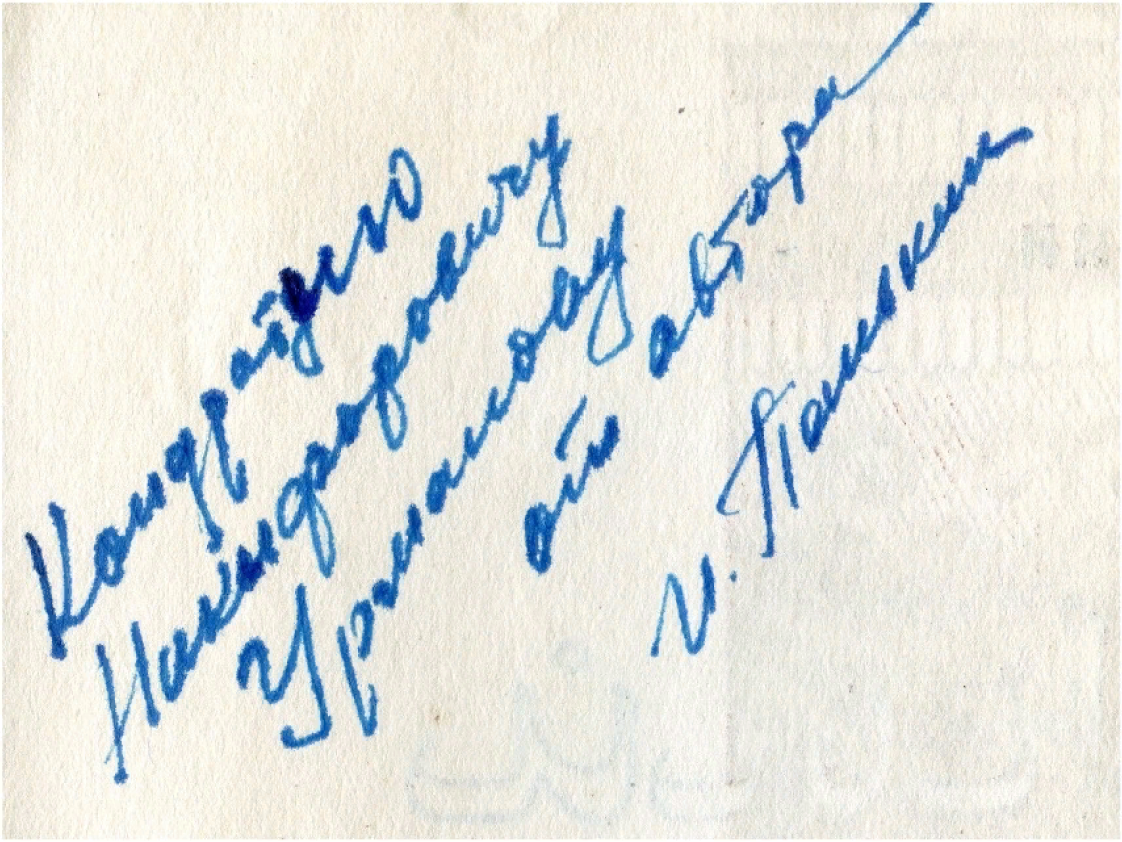 Кондратию
Никандровичу
Урманову
от автора
И. Панькин